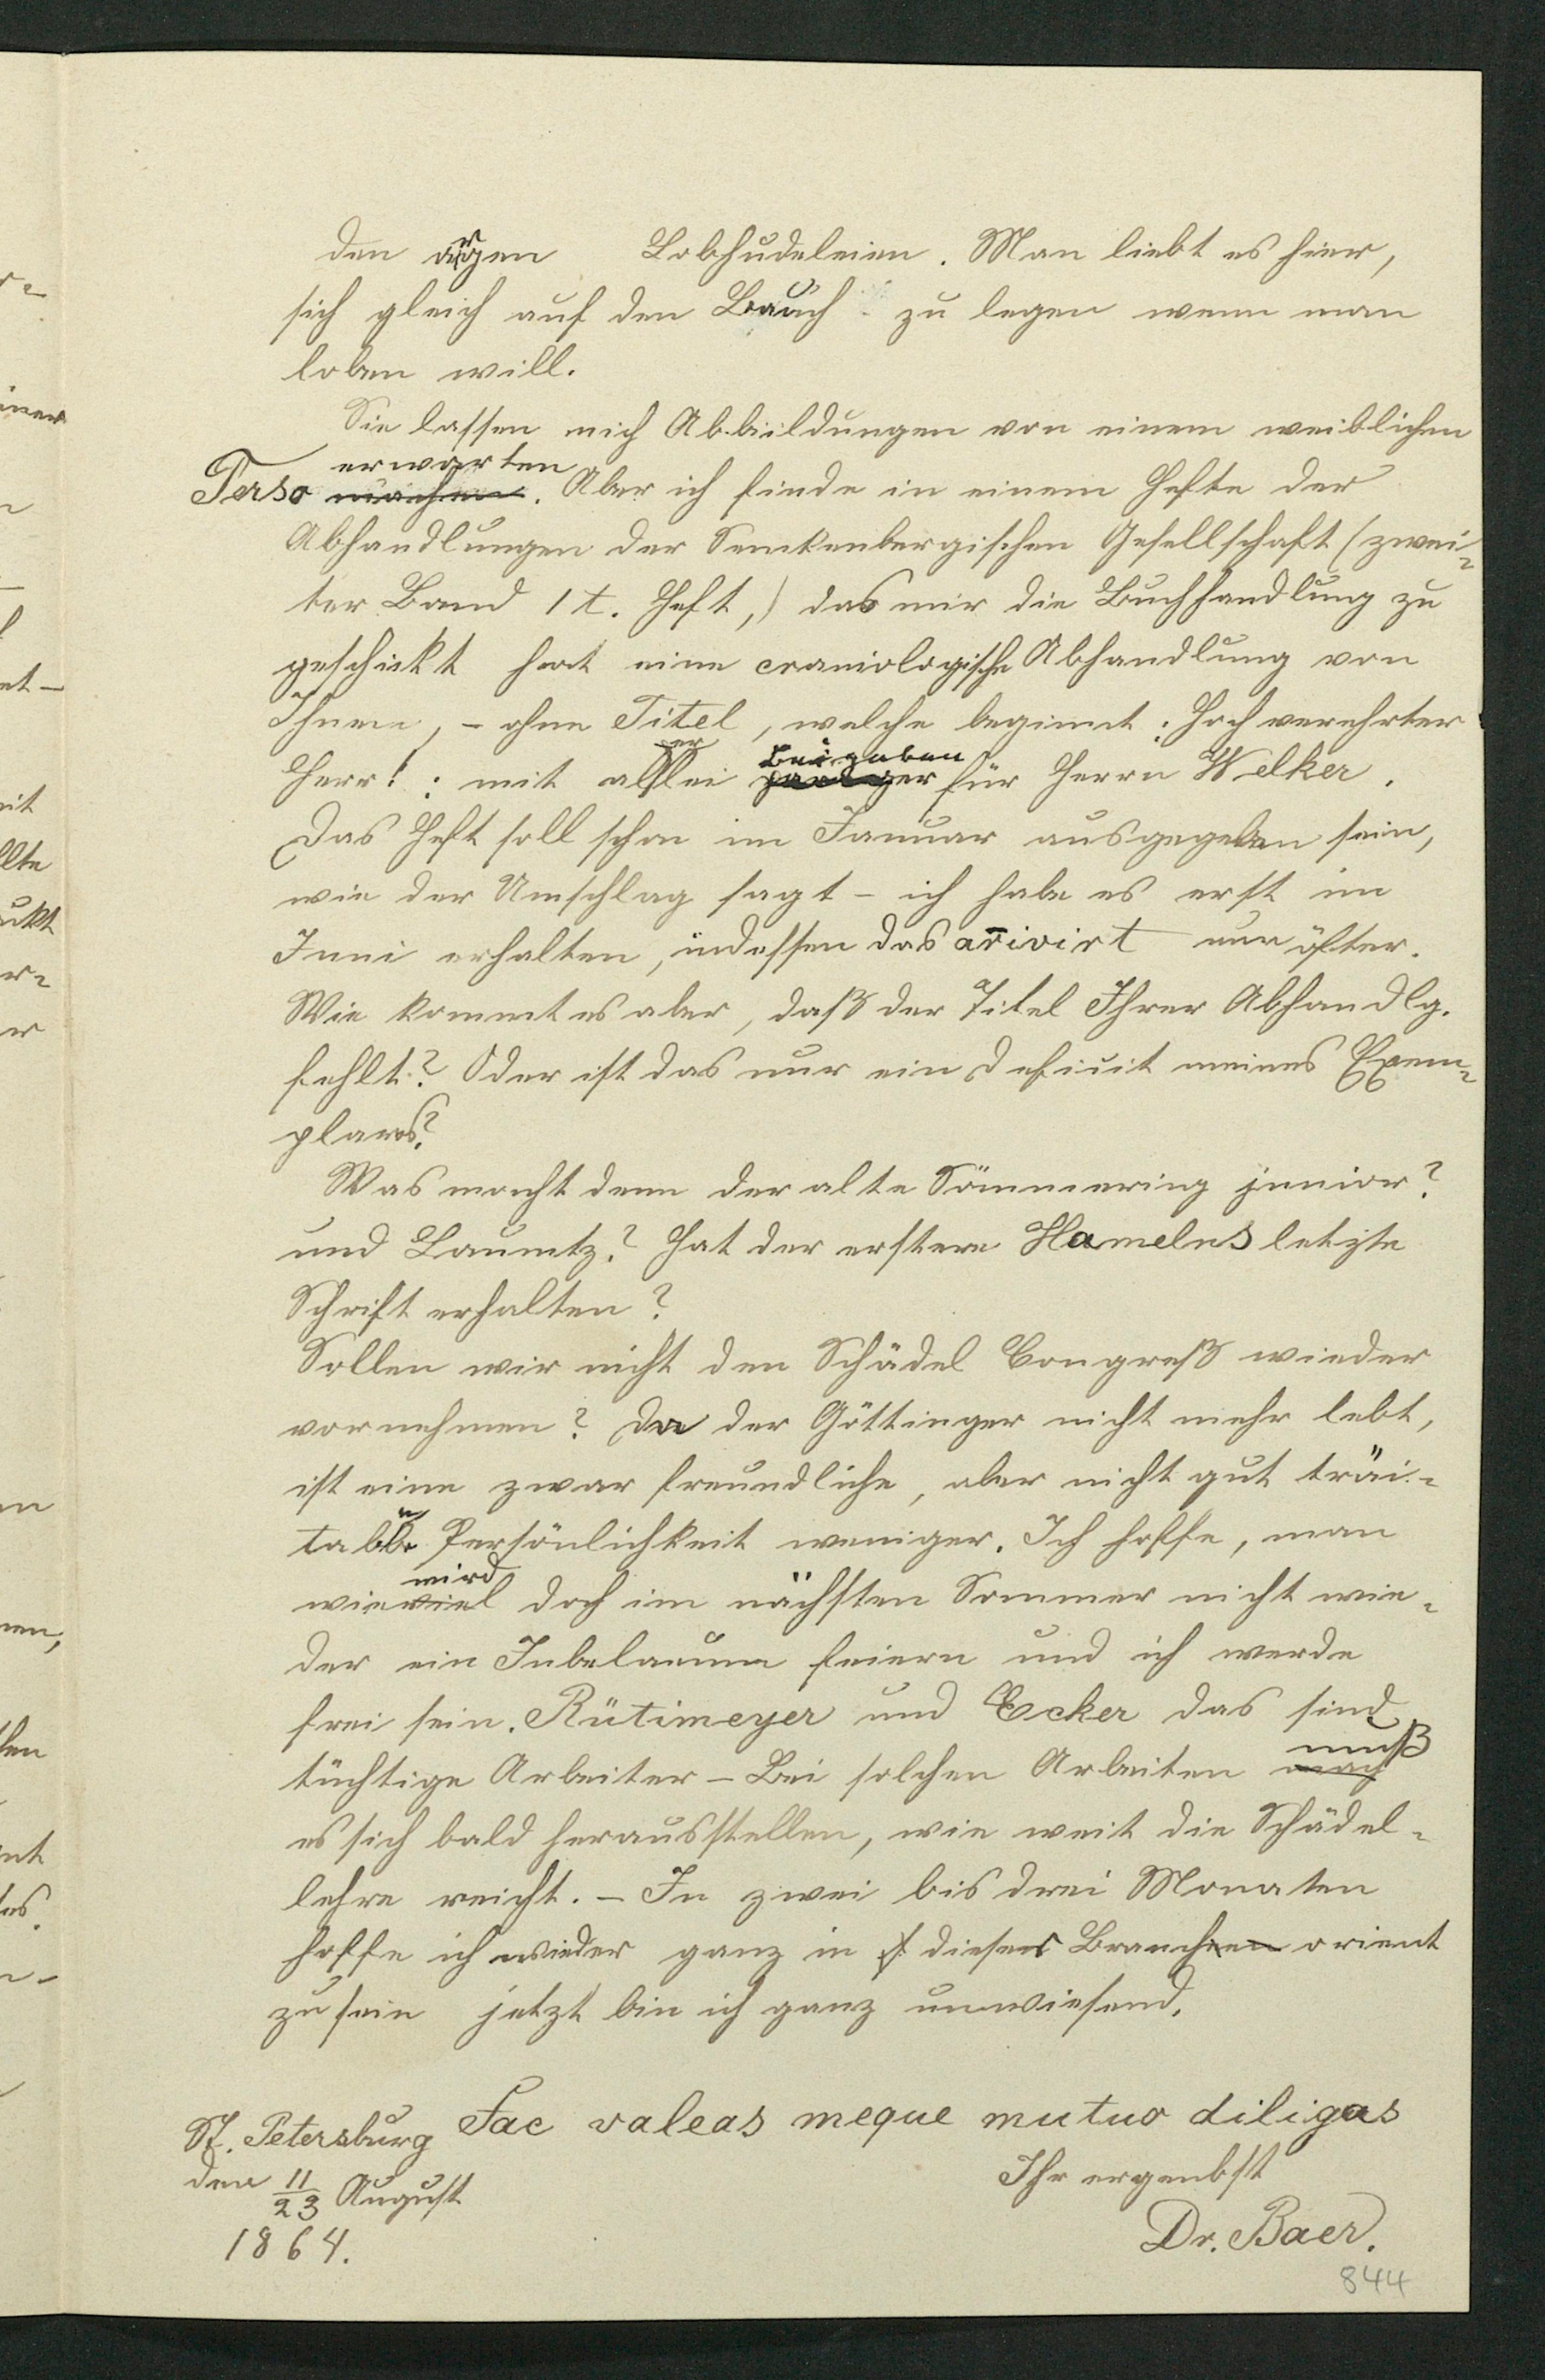 den argen Lobhudeleien. Man liebt es hier,
sich gleich auf den Bauch zu legen wenn man
loben will.
Sie lassen mich Abbildungen von einem weiblichen
erwarten
Torso machen. Aber ich finde in einem Hefte der
Abhandlungen der Senkenbergischen Gesellschaft (zwei-
ter Band 1t. Heft,) das mir die Buchhandlung zu
geschickt hat eine craniologische Abhandlung von
Ihnen, - ohne Titel, welche beginnt: Hochverehrter
Beigaben
Herr! : mit allerlei für Herrn Welker.
Das Heft soll schon im Januar ausgegeben sein,
wie der Umschlag sagt - ich habe es erst im
Juni erhalten, indessen das arivirt nun öfter.
Wie kommt es aber, daß der Titel Ihrer Abhandlg.
fehlt? Oder ist das nur ein Deficit meines Exem-
plares?
Was macht denn der alte Sömmering junior?
und Launitz? Hat der erstere Hamelns letzte
Schrift erhalten?
Sollen wir nicht den Schädel Congreß wieder
vornehmen? Da der Göttinger nicht mehr lebt,
ist eine zwar freundliche, aber nicht gut träi-
table Persönlichkeit weniger. Ich hoffe, man
wird
wieviel doch im nächsten Sommer nicht wie-
der ein Jubelaeum feiern und ich werde
frei sein. Rütimeyer und Ecker das sind
muß
tüchtige Arbeiter - Bei solchen Arbeiten mach
es sich bald herausstellen, wie weit die Schädel-
lehre reicht. - In zwei bis drei Monaten
hoffe ich wieder ganz in dieser Branchen orient
zu sein jetzt bin ich ganz unwissend.
Fac valeas meque mutuo diligas
St. Petersburg
den 11/23 August
1864.
Ihr ergenbst
Dr. Baer.
844